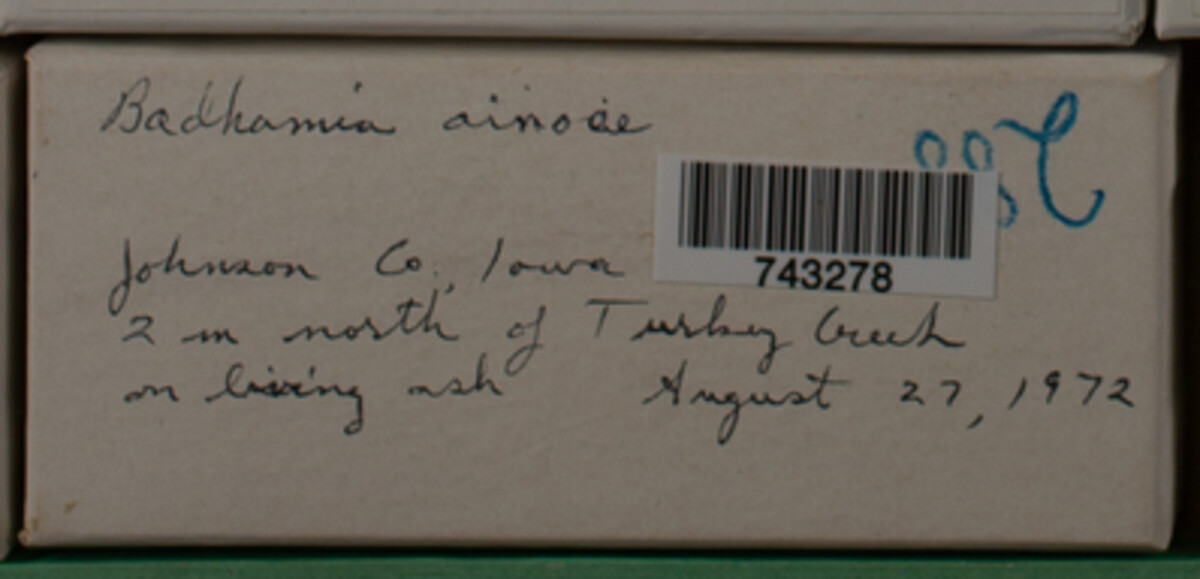 Badhamia ainoae
Johnson Co., Iowa
743278
2 m north of Turkey Creek
on living ash August 27, 1972